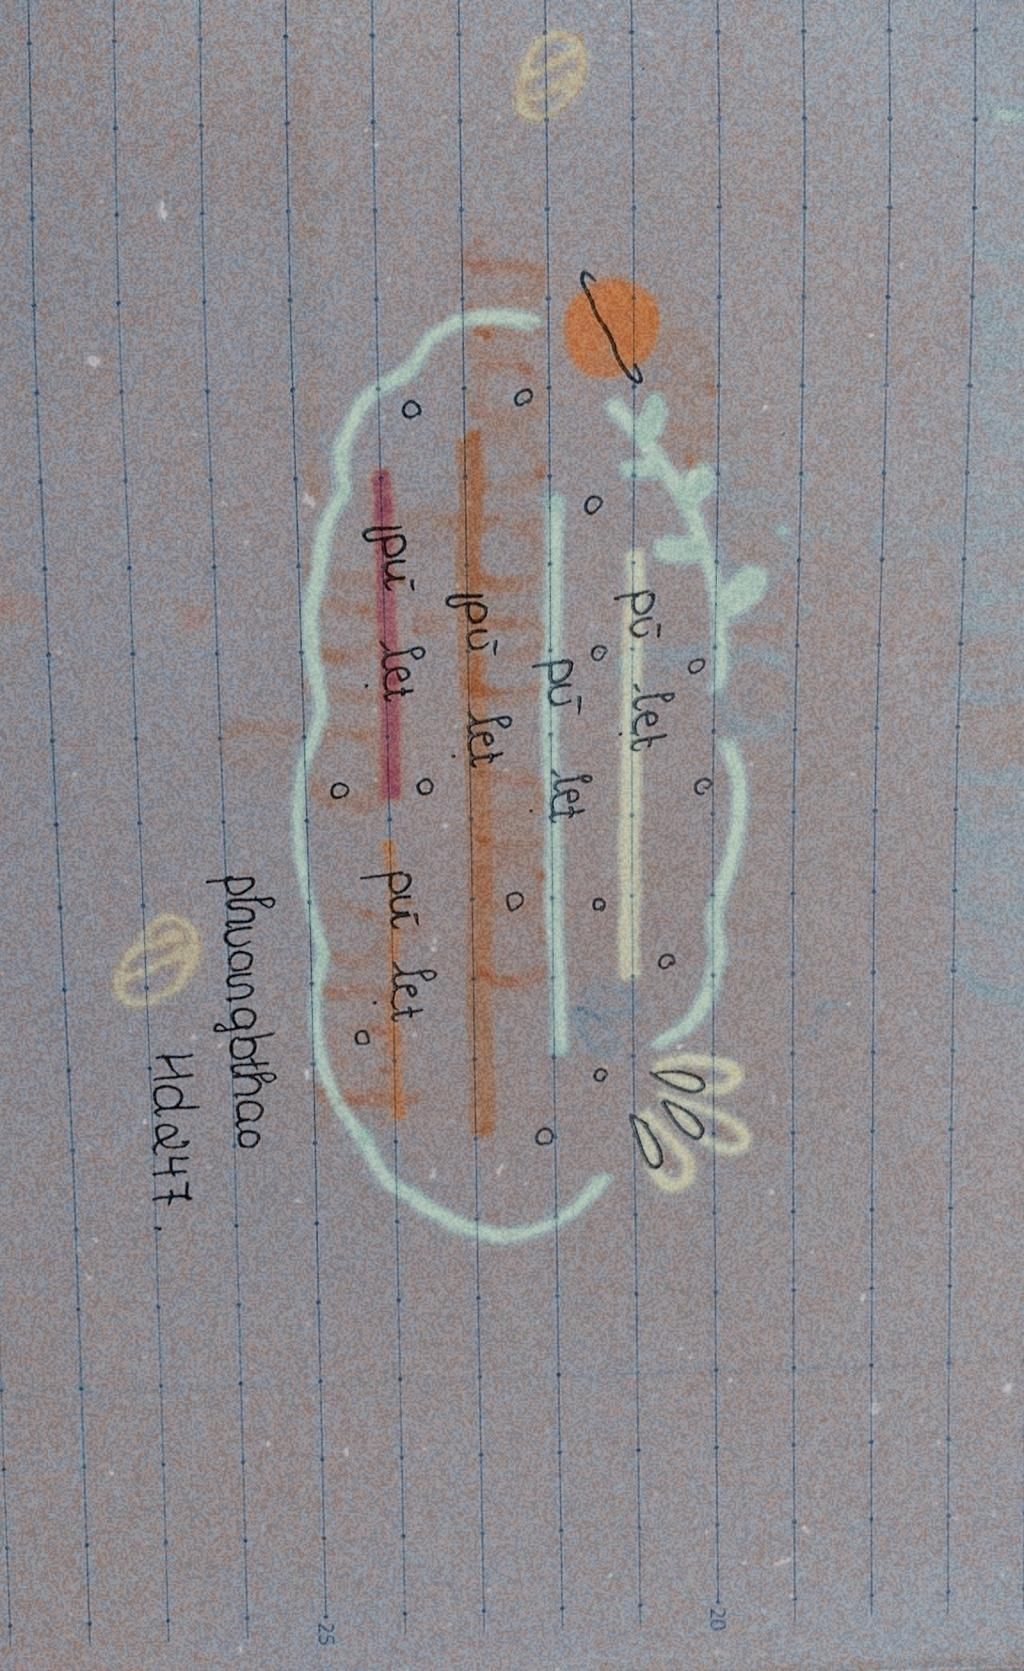 pū let
pū let
pū let
pū let pū let
phuongbthao
Hd247.
20
25